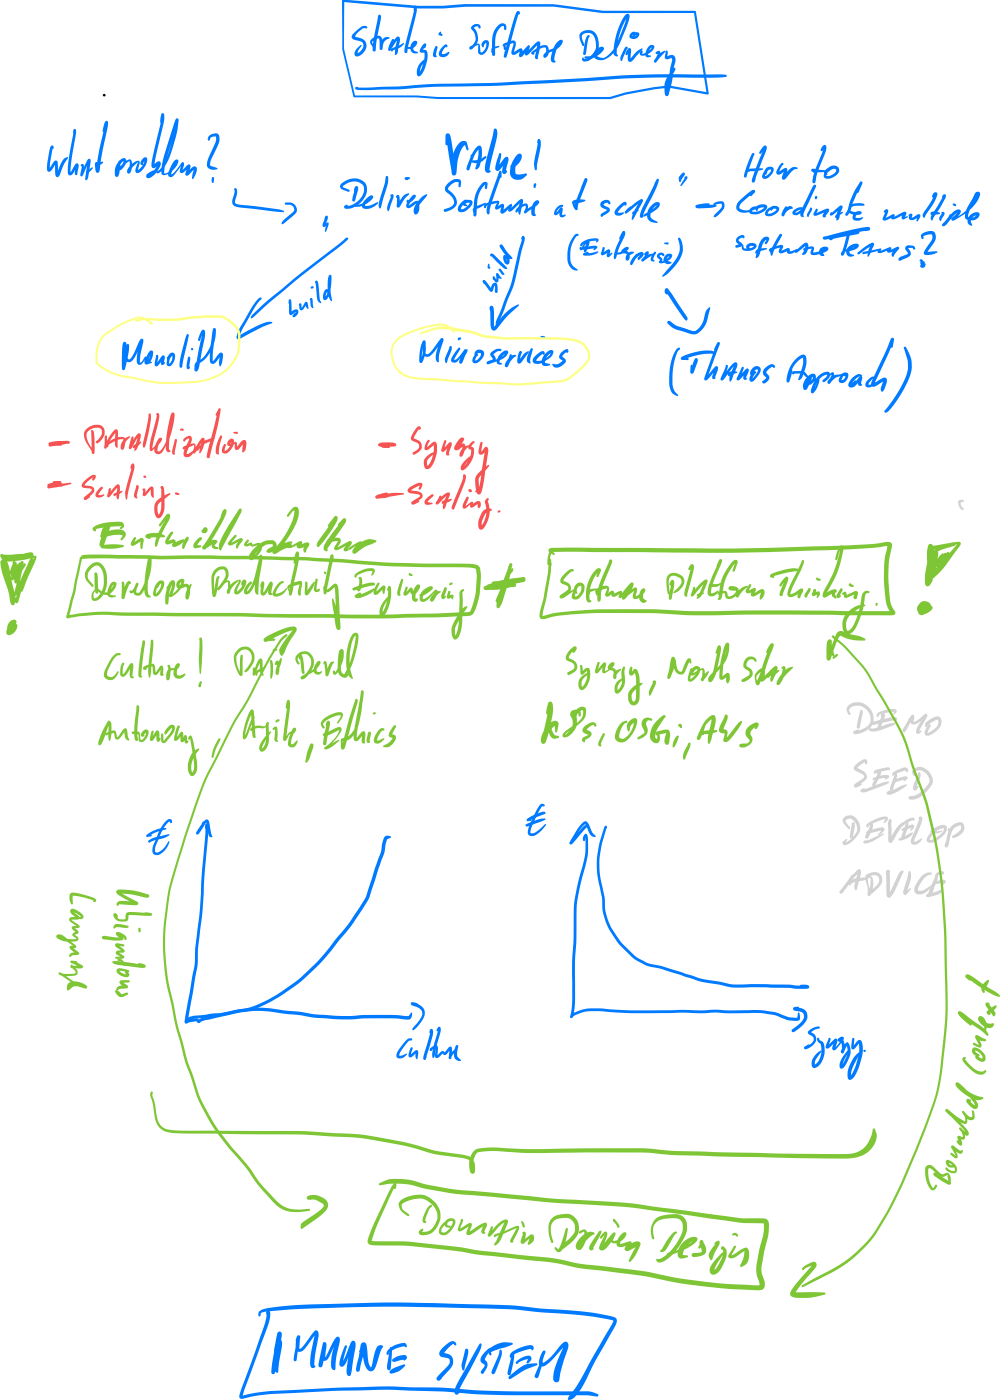 Strategic Software Delivery
What problem?
Value!
"Deliver Software at scale"
(Enterprise)
→ How to
Coordinate multiple
Software Teams?
build
build
Monolith
Microservices
(Thanos Approach)
- Parallelization
- Scaling.
- Synergy
- Scaling.
Entwicklungskultur
! Developer Productivity Engineering + Software Platform Thinking. !
Culture! Pair Devell
Autonomy, Agile, Ethics
Synergy, North Star
k8s, OSGi, AWS
DEMO
SEED
DEVELOP
ADVICE
€
Culture
€
Synergy
Ubiquitous
Language
Bounded Context
Domain Driven Design
IMMUNE SYSTEM